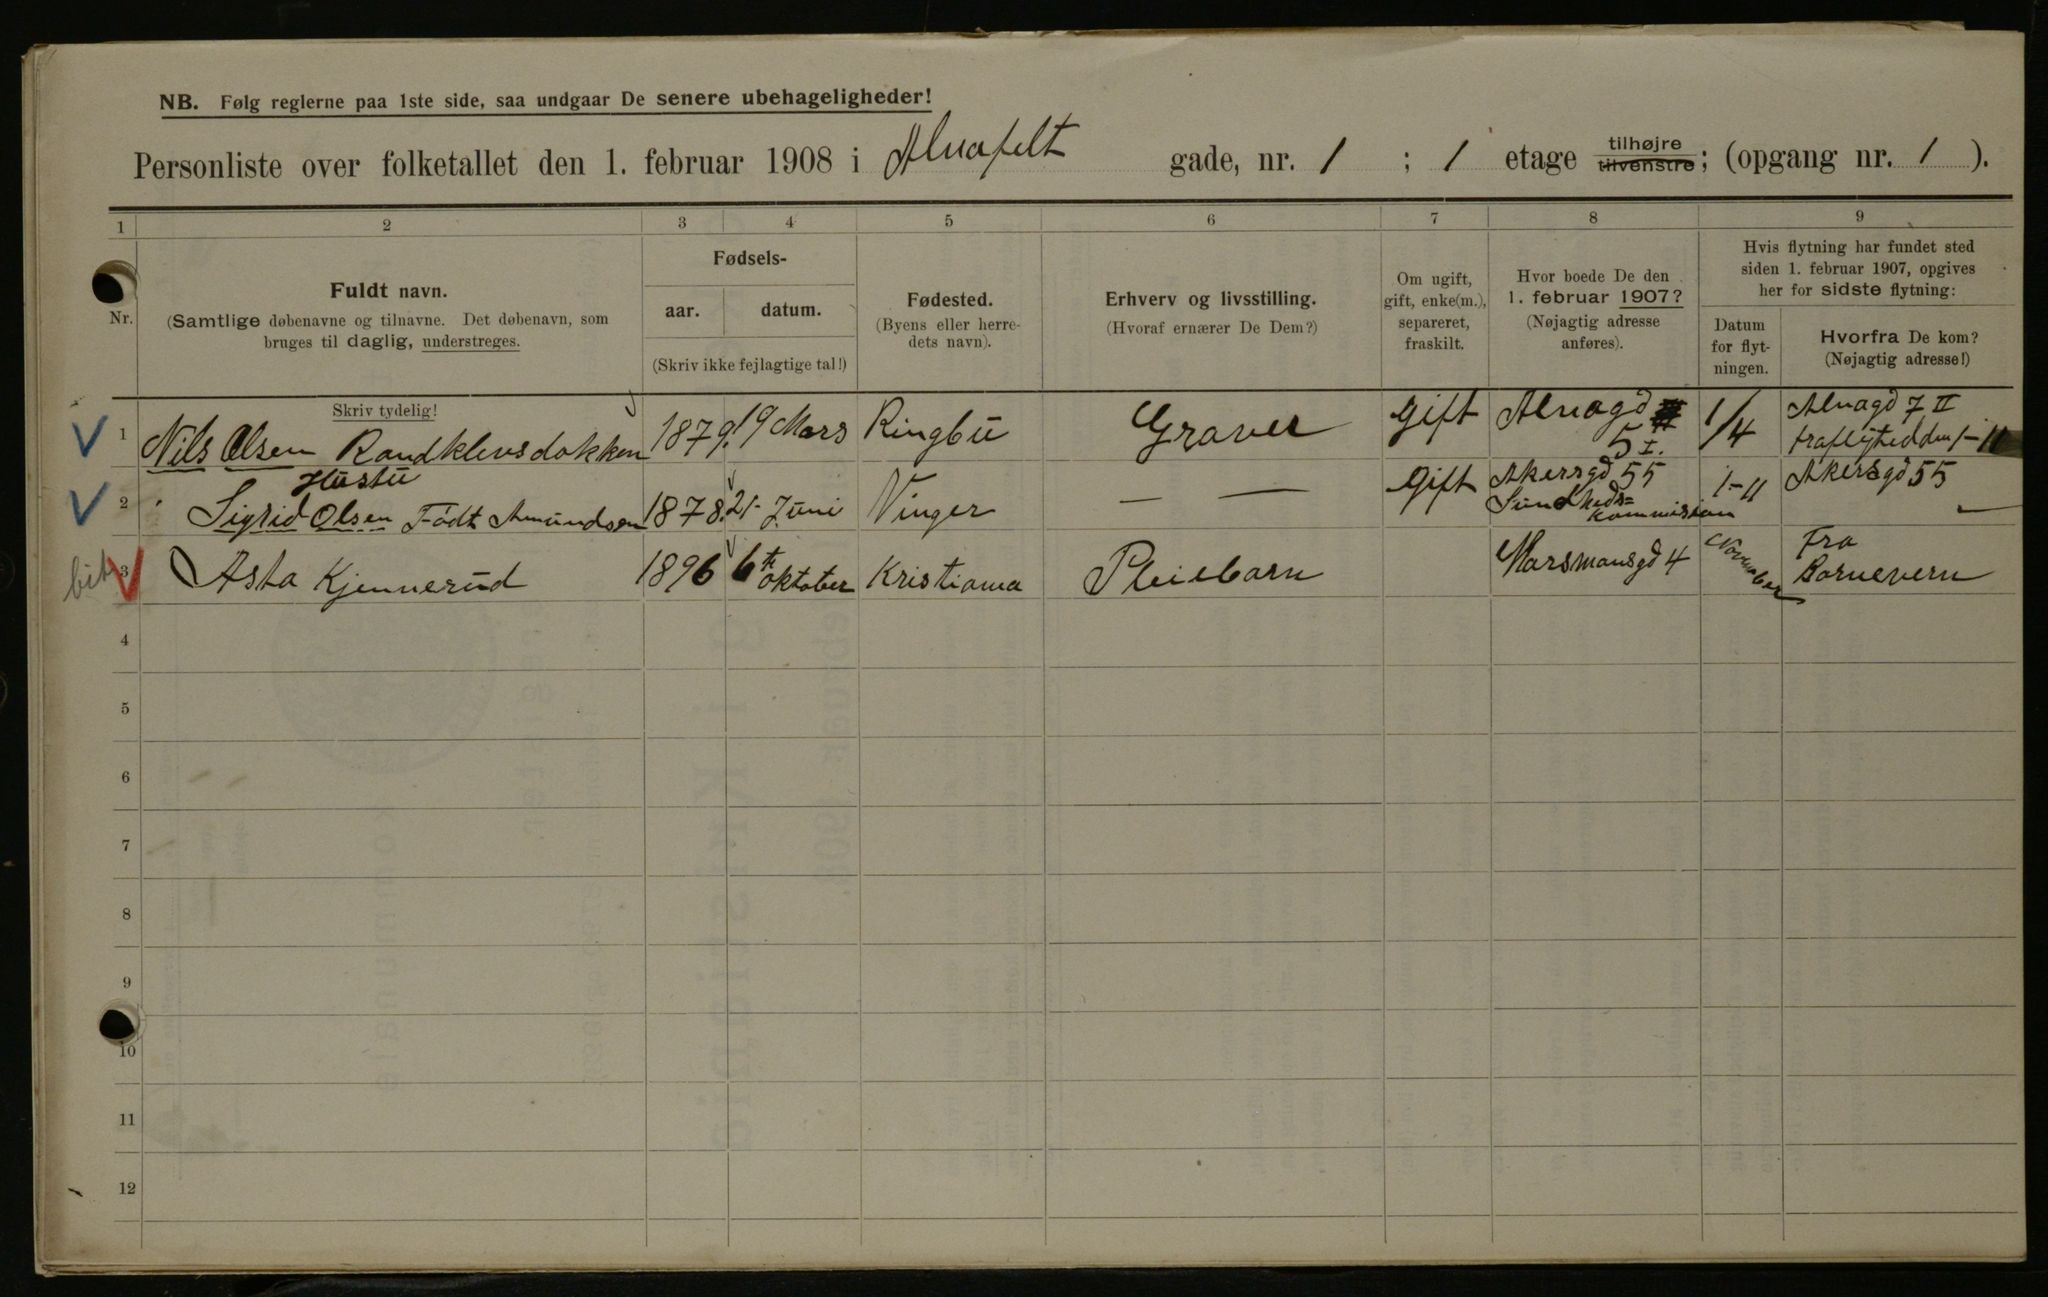 NB. Følg reglerne paa 1ste side, saa undgaar De senere ubehageligheder!
Personliste over folketallet den 1. februar 1908 i Alnafelt gade, nr. 1 ; 1 etage tilhøjre tilvenstre; (opgang nr. 1 ).
1 2 3 4 5 6 7 8 9
Nr.
Fuldt navn.
(Samtlige døbenavne og tilnavne. Det døbenavn, som
bruges til daglig, understreges.
Skriv tydelig!
Fødsels-
aar. datum.
(Skriv ikke fejlagtige tal!)
Fødested.
(Byens eller herre-
dets navn).
Erhverv og livsstilling.
(Hvoraf ernærer De Dem?)
Om ugift,
gift, enke(m.),
separeret,
fraskilt.
Hvor boede De den
1. februar 1907?
(Nøjagtig adresse
anføres).
Hvis flytning har fundet sted
siden 1. februar 1907, opgives
her for sidste flytning:
Datum
for flyt-
ningen.
Hvorfra De kom?
(Nøjagtig adresse!)
1 Nils Olsen Randklevsdokken 1879. 19 Mars Ringbu Graver Gift Alnagd 5 I. 1/4 Alnagd 7 II
fraflythed den 1-11
Hustu
2 Sigrid Olsen Födt Amundsen 1878. 21- Juni Vinger — — Gift Akersgd 55 1-11 Akersgd 55
Sundheds=
kommission
3 Asta Kjennerud 1896 6te oktober Kristiania Pleiebarn Marsmansgd 4 November Fra
Barnevern
4
5
6
7
8
9
10
11
12